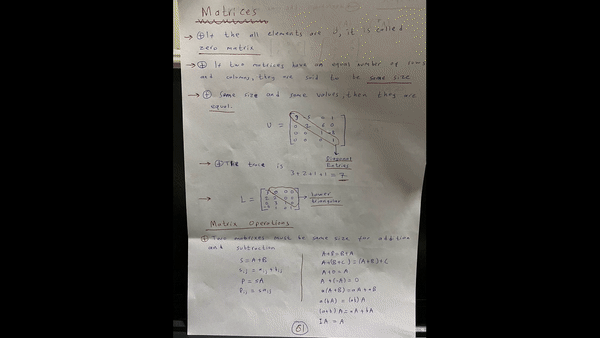 Matrices
→ ⊕ If the all elements are 0, it is called
zero matrix
→ ⊕ If two matrices have an equal number of rows
and columns, they are said to be same size
→ ⊕ Same size and same values, then they are
equal.
U =
Diagonal
Entries
→ ⊕ The is
3+2+1+1 = 7
→ L = → Lower
triangular
Matrix Operations
⊕ Two matrices must be same size for addition
and subtraction
S = A+B
sᵢⱼ = aᵢⱼ + bᵢⱼ
P = sA
pᵢⱼ = saᵢⱼ
A+B = B+A
A+(B+C) = (A+B)+C
A+0 = A
A+(-A) = 0
a(A+B) = aA+aB
a(bA) = (ab)A
(a+b)A = aA+bA
1A = A
61